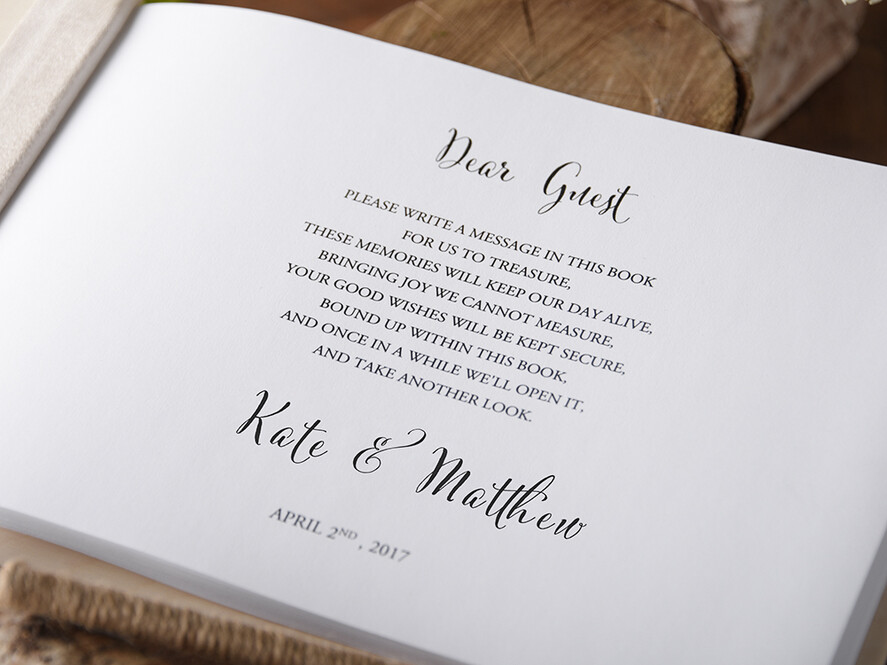 Dear Guest
PLEASE WRITE A MESSAGE IN THIS BOOK
FOR US TO TREASURE,
THESE MEMORIES WILL KEEP OUR DAY ALIVE,
BRINGING JOY WE CANNOT MEASURE,
YOUR GOOD WISHES WILL BE KEPT SECURE,
BOUND UP WITHIN THIS BOOK,
AND ONCE IN A WHILE WE'LL OPEN IT,
AND TAKE ANOTHER LOOK.
Kate & Matthew
APRIL 2ND, 2017